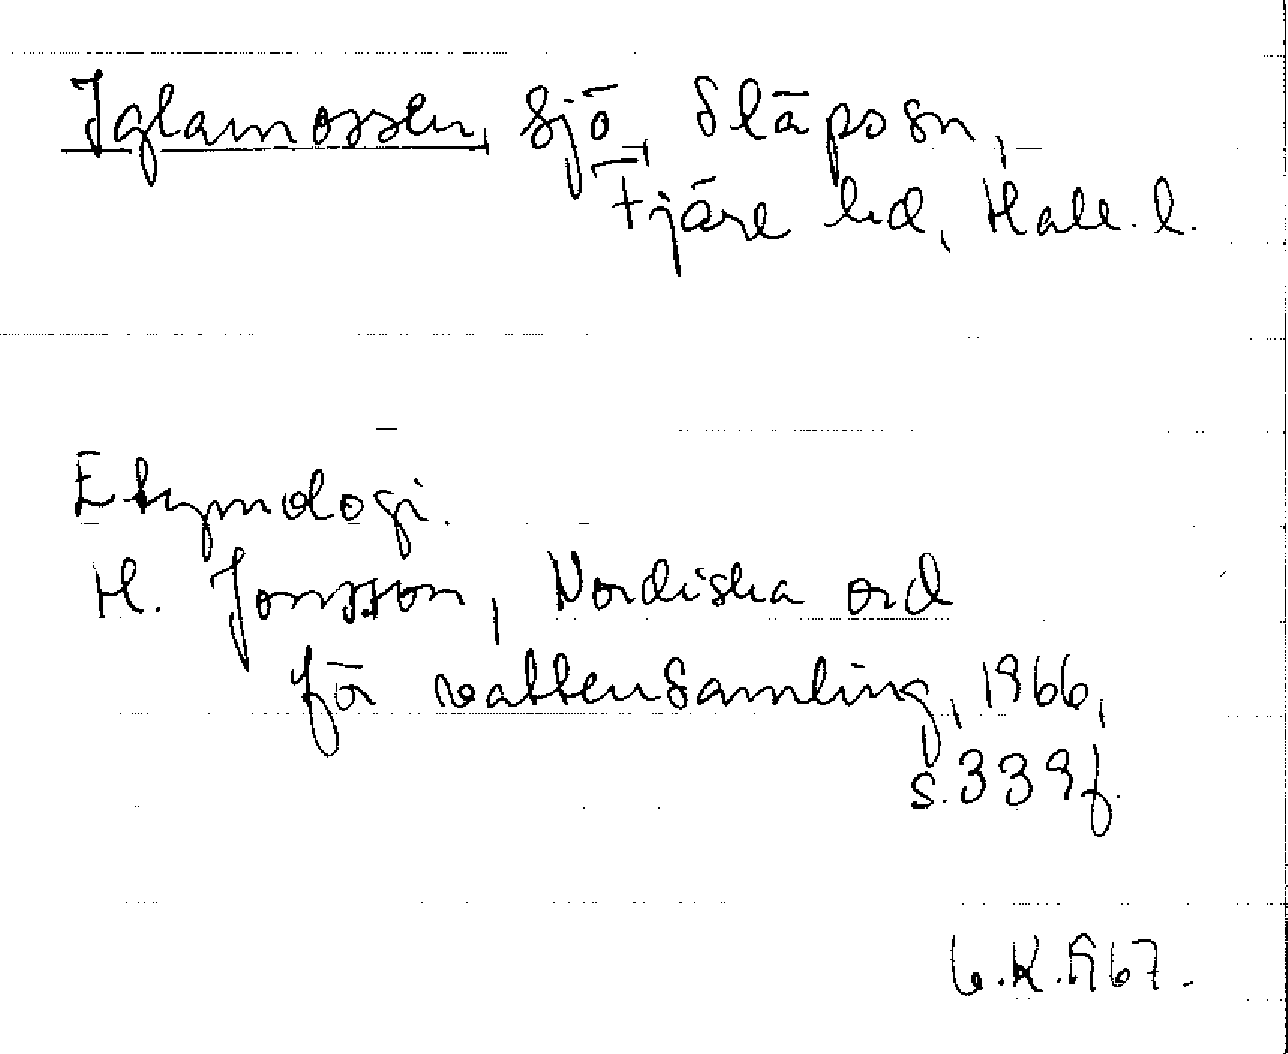 Iglamossen, sjö, Släps sn,
Fjäre hd, Hall. l.
Etymologi.
H. Jonsson, Nordiska ord
för vattensamling, 1966,
s. 339 f.
K. 1967.